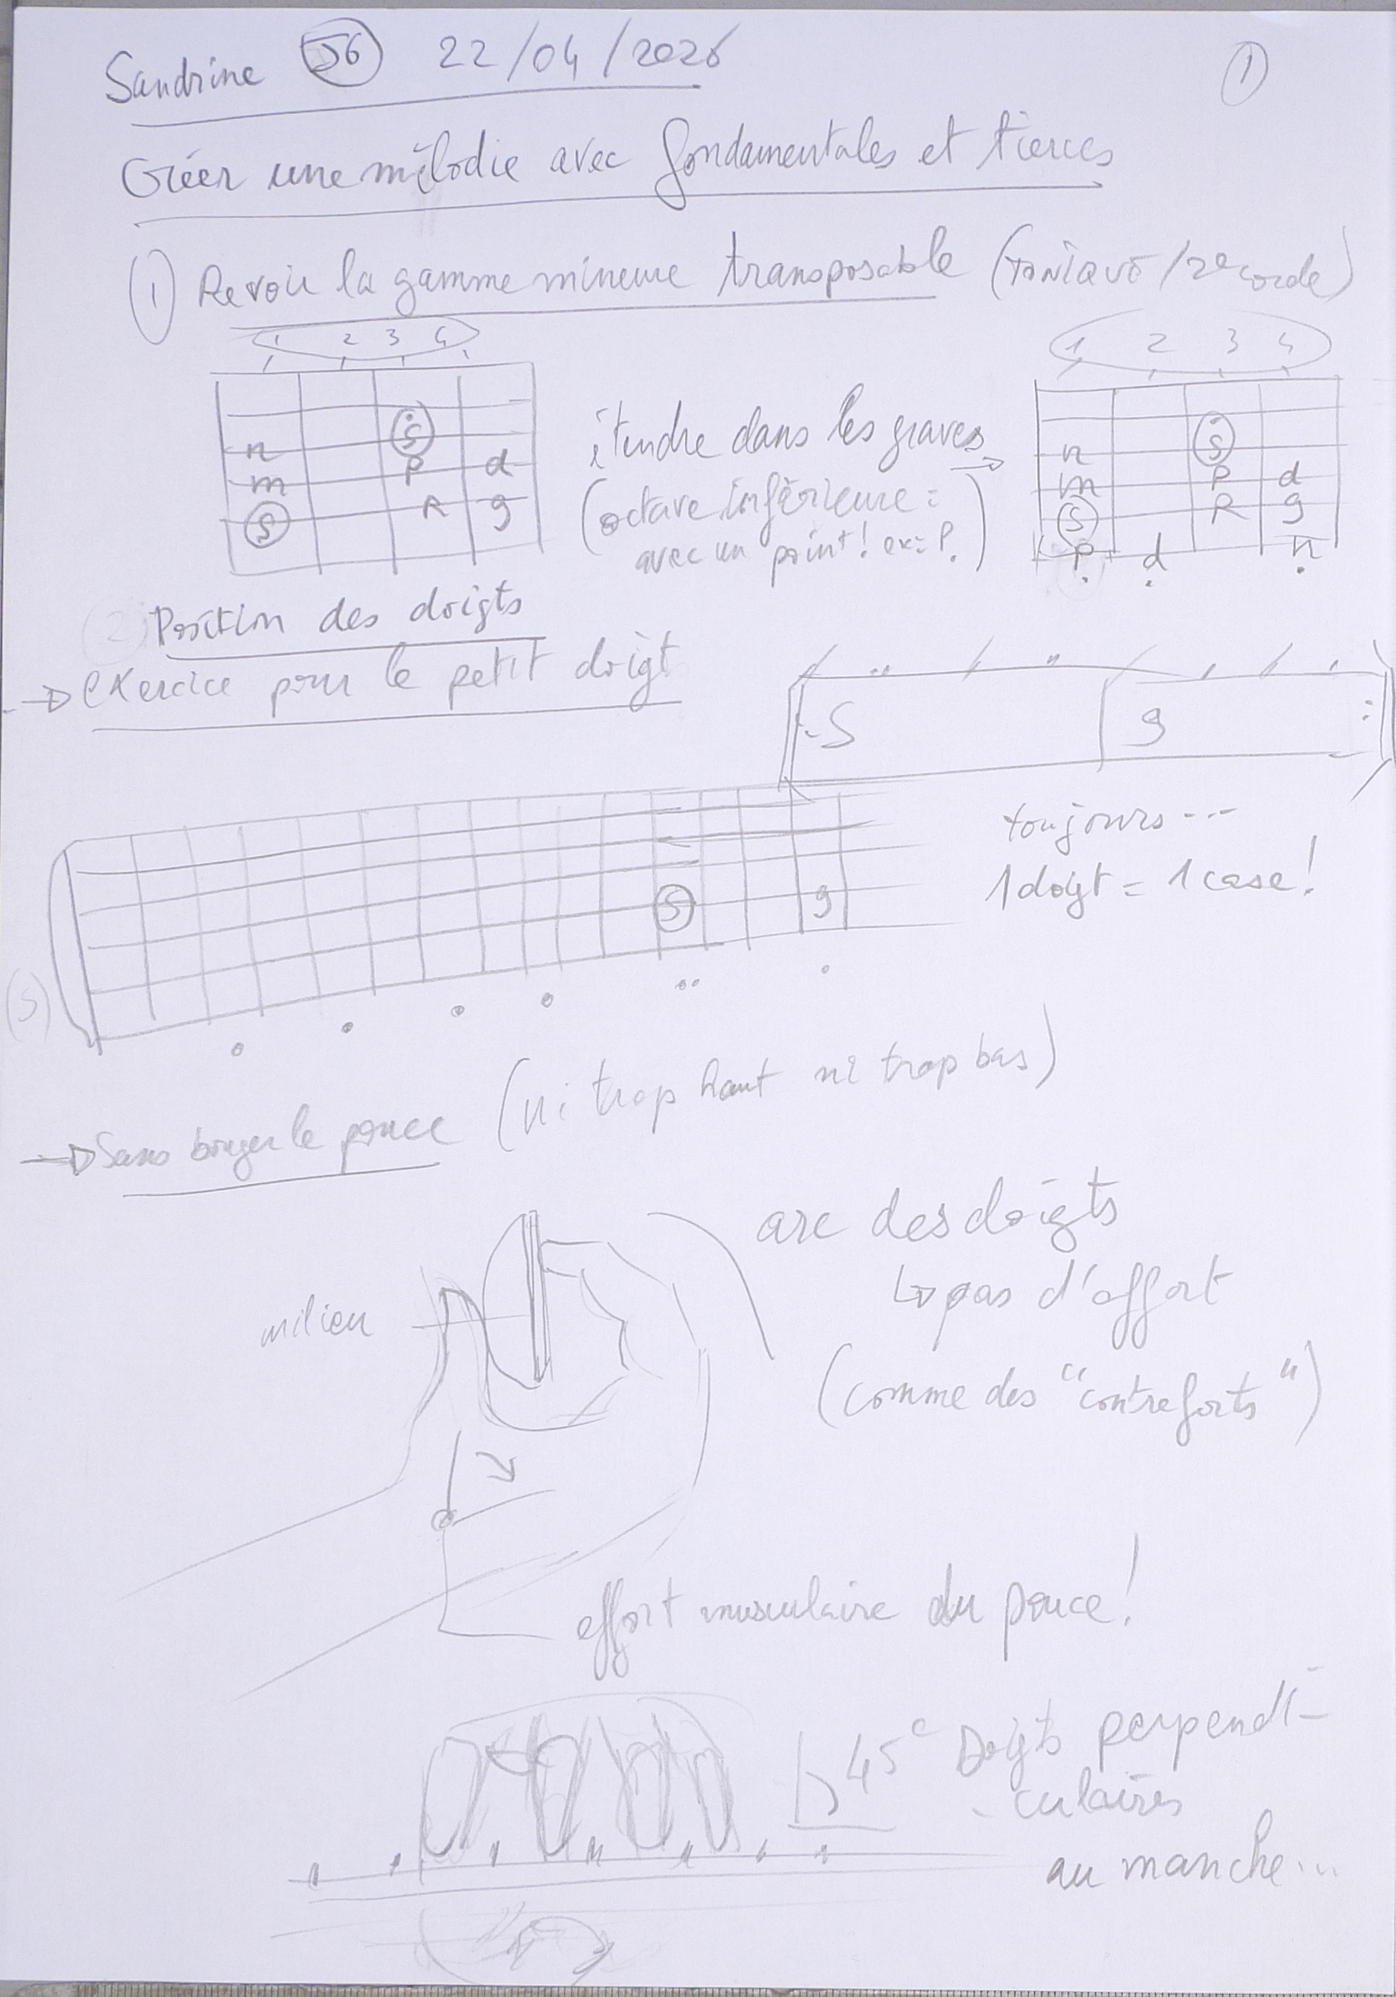 Sandrine 56 22/04/2026
1
Créer une mélodie avec fondamentales et tierces
1 Revoir la gamme mineure transposable (TONIQUE / 2e corde)
1 2 3 4
1 2 3 4
S
n
P d
m
R g
S
étendre dans les graves
(octave inférieure =
avec un point! ex = P.)
S
n
P d
m
R g
S
P d n
2 Position des doigts
→ exercice pour le petit doigt
S g
toujours ...
1 doigt = 1 case!
S g
5
→ Sans bouger le pouce (ni trop haut ni trop bas)
arc des doigts
↳ pas d'effort
milieu
(comme des "contreforts")
effort musculaire du pouce!
45° Doigts perpendi-
-culaires
au manche...